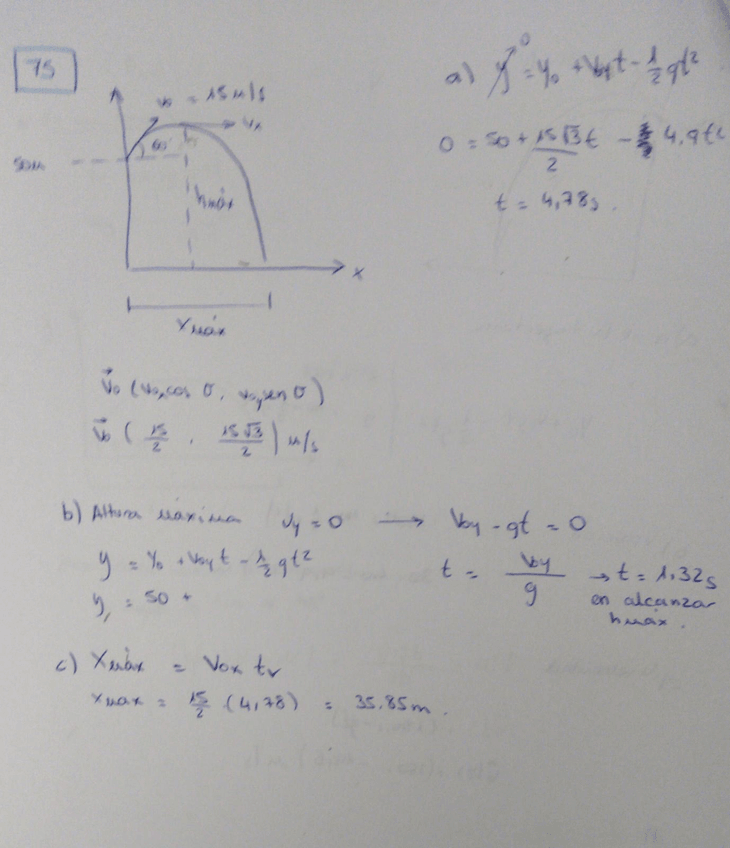 75
v₀ = 15 m/s
Vx
60°
50m
hmáx
x
Xmáx
a) y⁰ = y₀ + V₀yt - 1/2 gt²
0 = 50 + 15√3/2 t - 4,9t²
t = 4,78s.
V⃗₀ (v₀ₓcos σ, v₀ᵧsen σ)
V⃗₀ (15/2 , 15√3/2) m/s
b) Altura máxima Vy = 0 → V₀y - gt = 0
y = y₀ + V₀y t - 1/2 gt²
t = V₀y/g → t = 1,32s
en alcanzar
hmáx.
y₁ = 50 +
c) Xmáx = V₀x tv
xmax = 15/2 (4,78) = 35,85m.